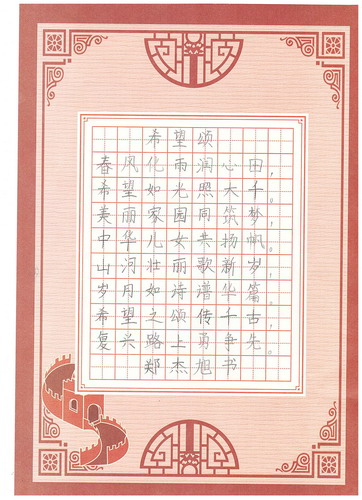 希望颂
春风化雨润心田，
希望如光照大千。
美丽家园同筑梦，
中华儿女共扬帆。
山河壮丽歌新岁，
岁月如诗谱华篇。
希望之颂传千古，
复兴路上勇争先。
郑杰旭书